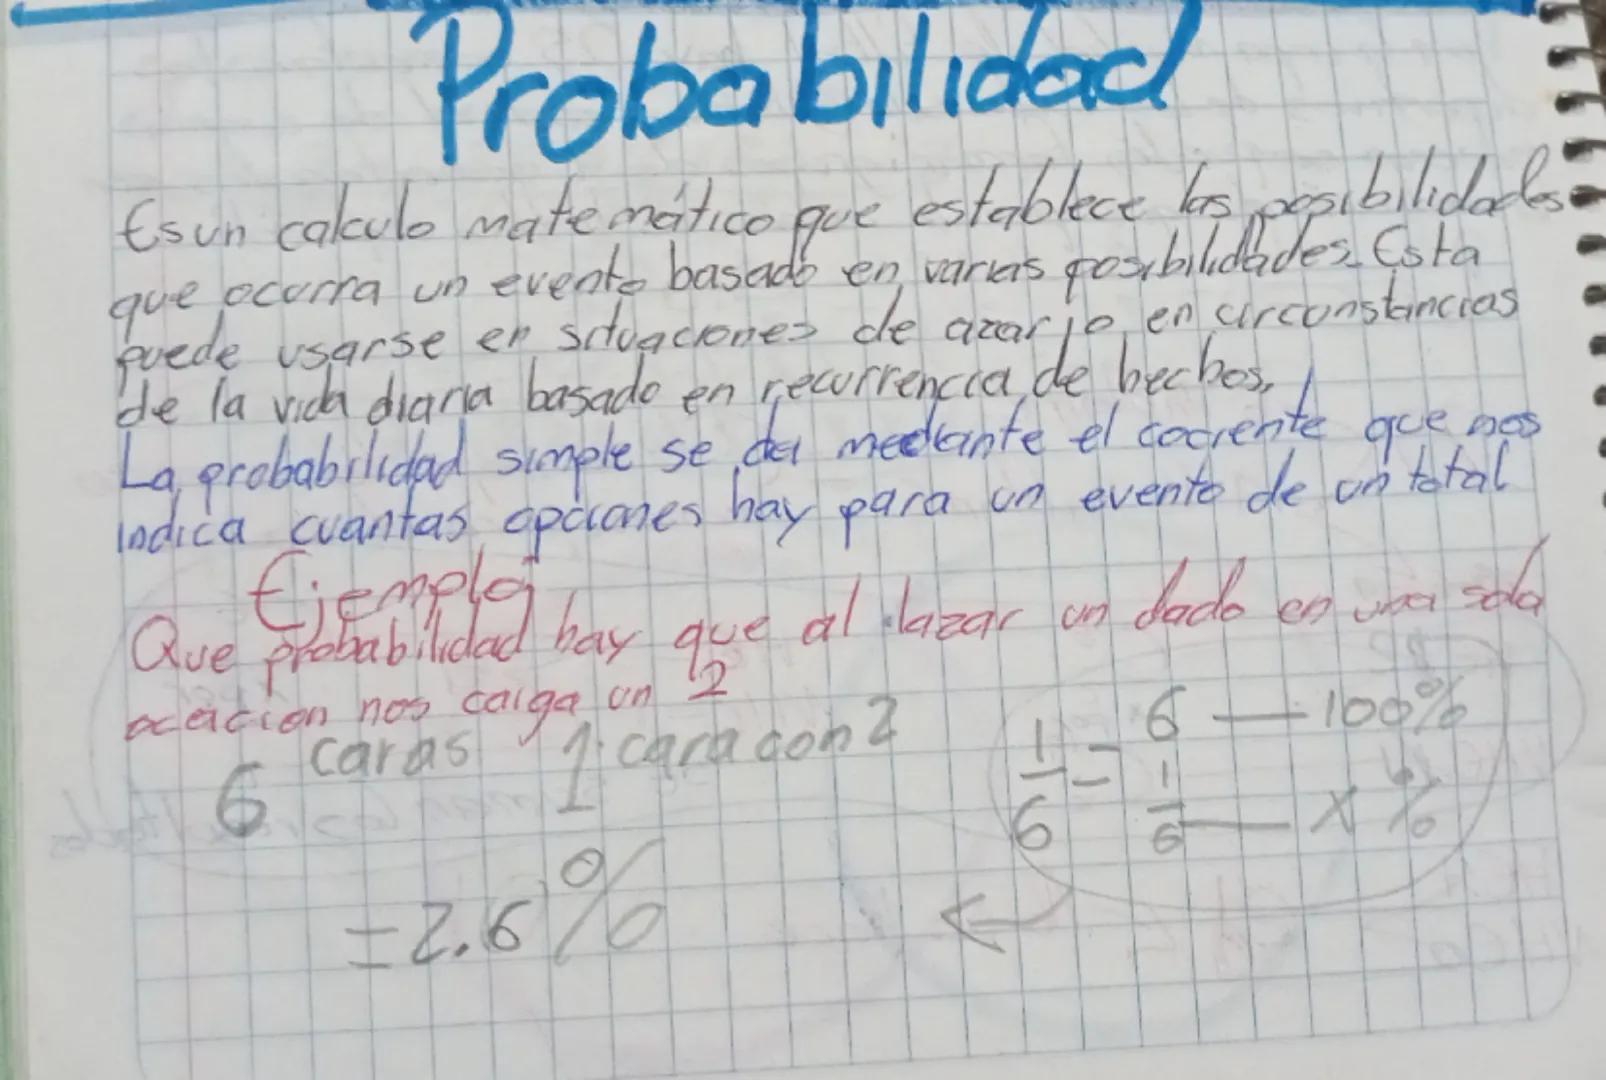 Probabilidad
Es un calculo matemático que establece las posibilidades
que ocurra un evento basado en varias posibilidades. Esta
puede usarse en situaciones de azar jo en circunstancias
de la vida diaria basado en recurrencia de hechos.
La probabilidad simple se da mediante el cociente que nos
indica cuantas opciones hay para un evento de un total
Ejemplo
Que probabilidad hay que al lazar un dado en una sola
ocacion nos caiga un 2
6 caras 1 cara con 2
1/6 = 6 — 100%
1/6 — x %
=2.6%